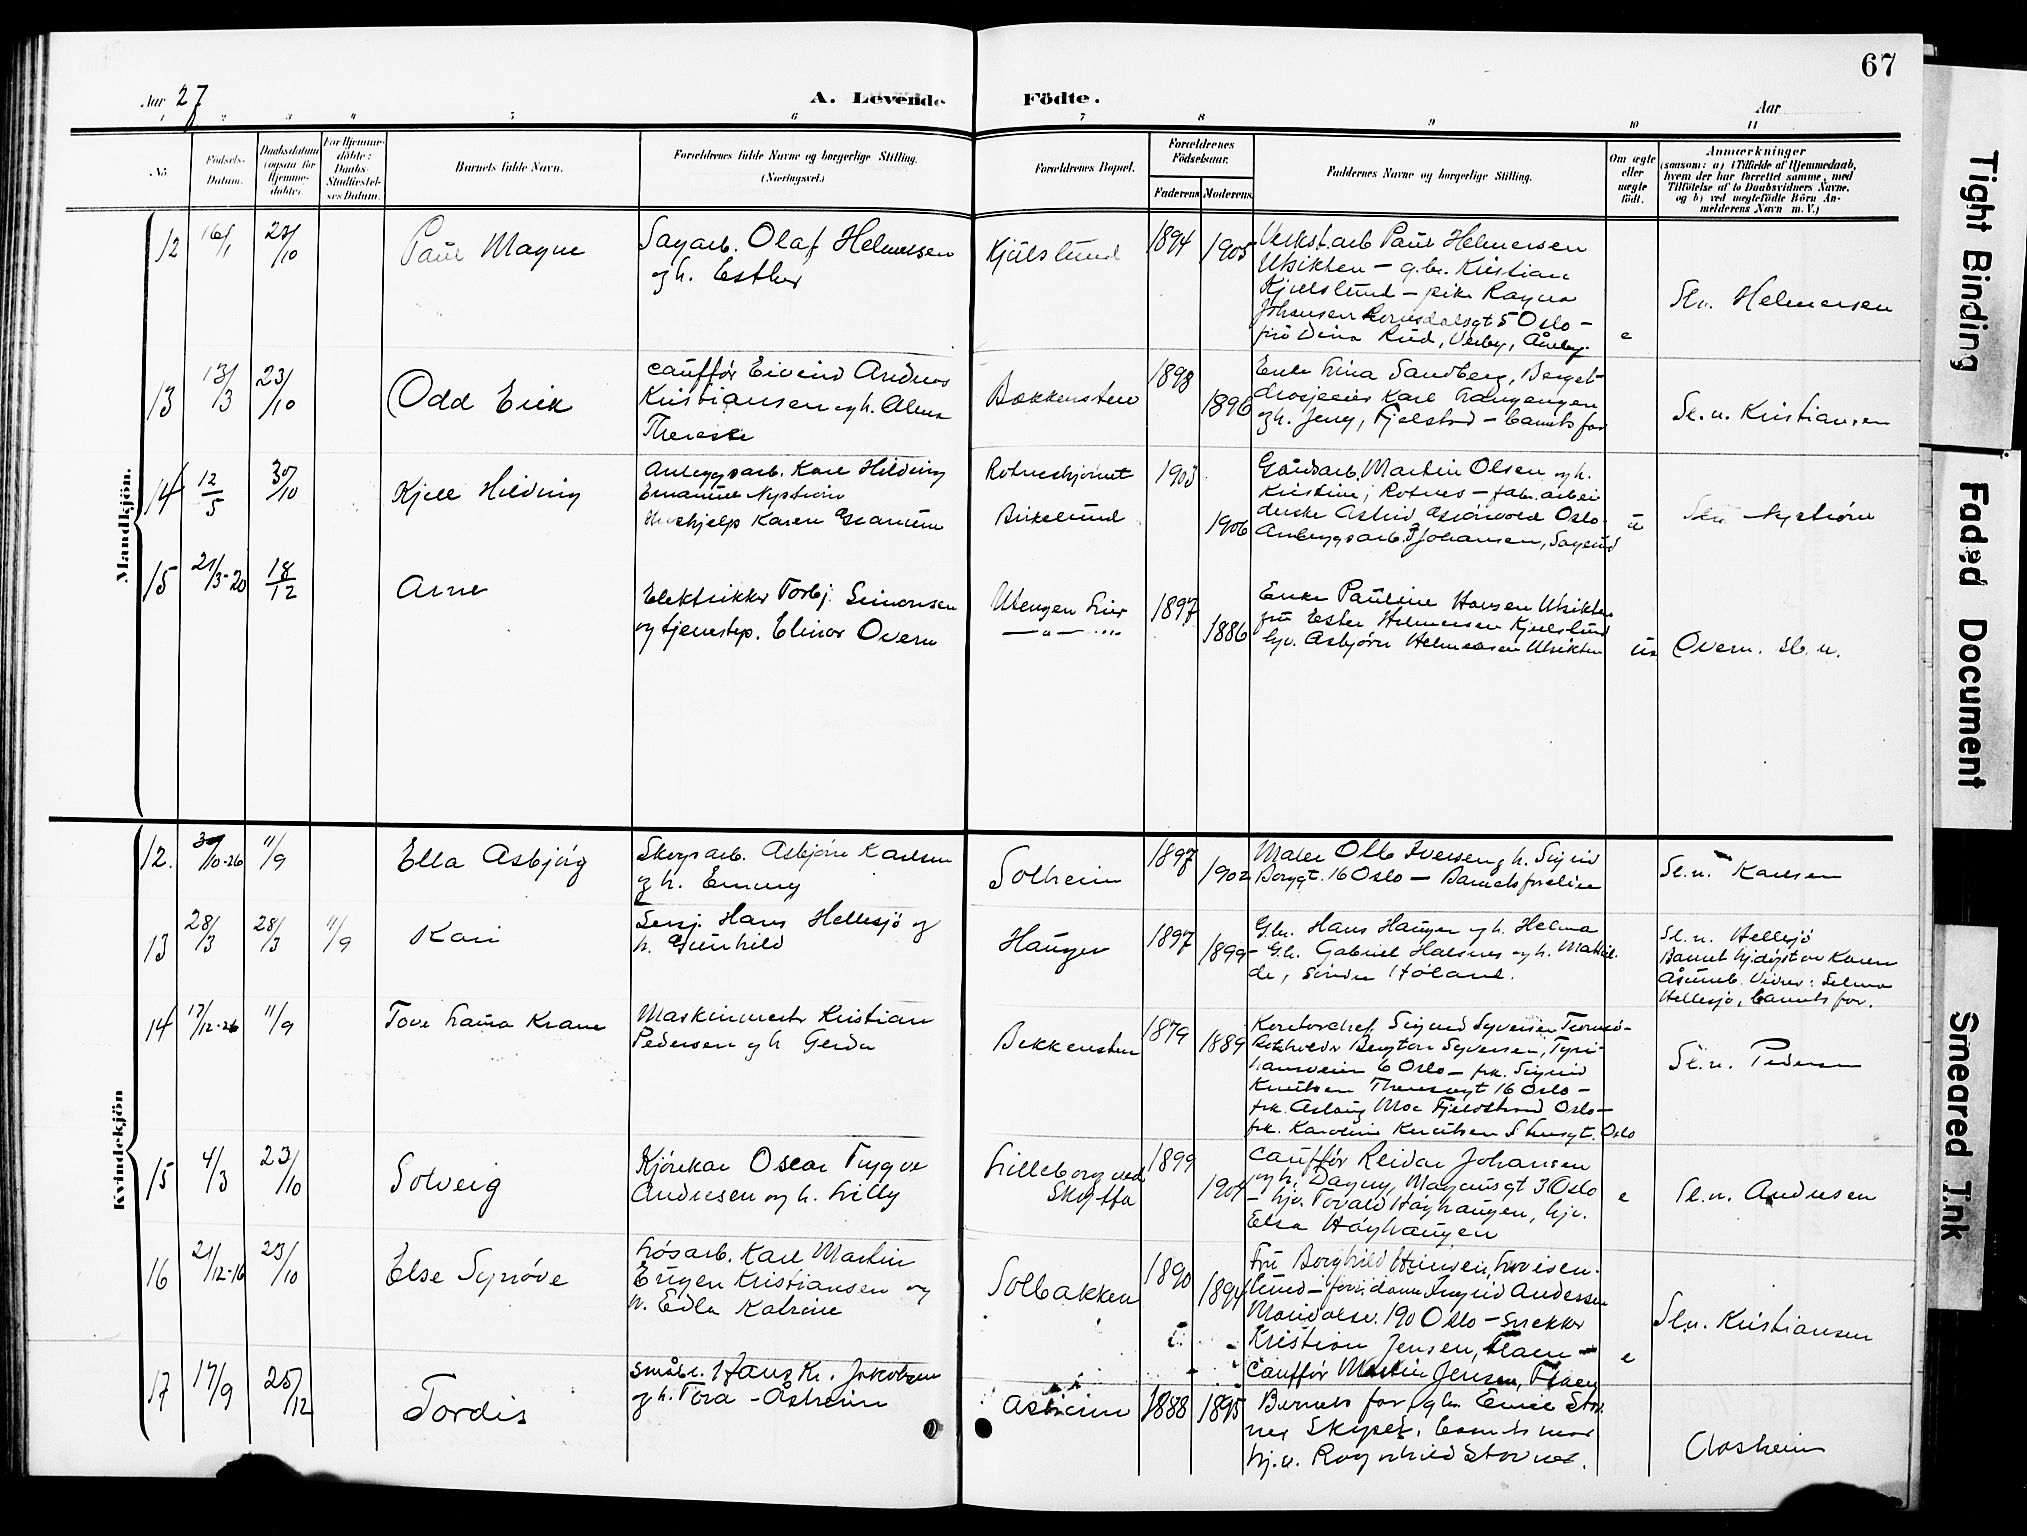 67
Aar 27
A. Levende Födte.
Aar
1 2 3 4 5 6 7 8 9 10 11
No
Födsels-Datum.
Daabsdatum (ogsaa for Hjemme-döbte).
For Hjemme-döbte: Daabs-Stadfæstel-ses Datum.
Barnets fulde Navn.
Forældrenes fulde Navne og borgerlige Stilling.
(Næringsvei.)
Forældrenes Bopæl.
Forældrenes Födselsaar.
Faderens. Moderens.
Faddernes Navne og borgerlige Stilling.
Om ægte eller uægte födt.
Anmærkninger
(saasom: a) i Tilfælde af Hjemmedaab,
hvem der har forrettet samme, med
Tilföielse af to Daabsvidners Navne,
og b) ved uægtefödte Börn An-
melderens Navn m. V.)
Mandkjön.
12 16/1 23/10 Paul Magne
Sagarb. Olaf Helmersen
og h. Esther
Kjulslund 1894 1905
Verkstarb Paul Helmersen
Utsikten – g.br. Kristian
Kjulslund – pike Ragna
Johansen Romsdalsgt 5 Oslo –
fru Dina Rud, Verby, Åneby.
e
Sl.n. Helmersen
13 13/3 23/10 Odd Erik
Cauffør Eivind Andreas
Kristiansen og h. Alma
Therese
Bækkensten 1898 1896
Enke Lina Sandberg, Berget –
drosjeeier Karl Langengen
og h. Jeny, Fjelstad – barnets far
Sl.n. Kristiansen
14 12/5 30/10 Kjell Hilding
Anleggsarb. Karl Hilding
Emanuel Nystrøm
Hushjelp Karen Granum
Rotneskjernet
Birkelund
1903 1906
Gårdsarb. Martin Olsen og h.
Kristine, Rotnes – fabr.arbei
derske Astrid Oslo.
Anleggsarb. J Johansen, Sagerud
u
Sl.n. Nystrøm
15 21/3-20 18/12 Arne
Elektriker Torbj. Simonsen
og tjenestep. Elinor Overn
Utengen Lier
— " — "
1897 1886
Enke Pauline Hansen Utsikten
fru Ester Helmersen Kjulslund
Gjv. Asbjørn Helmersen Utsikten
u.
Overn. Sl. n.
Kvindekjön
12. 30/10-26 11/9 Ella Asbjørg
Skogsarb. Asbjørn Karlsen
og h. Emmy
Solheim 1897 1902
Maler Olb Iversen og h. Sigrid
Borggt. 16 Oslo – Barnets foreldre
Sl.n. Karlsen
13 28/3 28/3 11/9 Kari
Sersj. Hans Hellesjø og
h. Gunhild
Hauger 1897 1899
G.br. Hans Hauger og h. Helma
– G.br. Gabriel Halsnes og h. Mathil-
de, Søndre Høland.
Sl.n. Hellesjø
Barnet hj.døpt av Karen
Åsumb. Vidner: Selma
Hellesjø, barnets far.
14 17/12-26 11/9 Tove Laura Krane
Maskinmester Kristian
Pedersen og h Gerda
Bekkensten 1879 1889
Kontorchef Sigurd Syversen Tromsø –
Bergton Syversen, Tyri-
hansveien 6 Oslo – frk. Sigrid
Knutsen Theresesgt 16 Oslo –
frk. Aslaug Moe Fjeldstrand Oslo –
frk. Karoline Knutsen Stensgt. Oslo
Sl.n. Pedersen
15 4/3 23/10 Solveig
Kjørekar Oscar Trygve
Andresen og h. Lilly
Lilleborg ved
Skytta
1899 1904
Cauffør Reidar Johansen
og h. Dagny, Magnusgt 3 Oslo
– hjv. Tovald Høyhaugen, hjv.
Elsa Høyhaugen
e
Sl.n. Andresen
16 21/12-16 23/10 Else Synøve
Løsarb. Karl Martin
Eugen Kristiansen og
h. Edla Katrine
Solbakken 1890 1894
Fru Borghild Hansen, Lovisen-
lund – forr.dame Ingrid Andersen
Maridalsv. 190 Oslo – snekker
Kristian Jensen, Flaen –
Cauffør Martin Jensen, Flaen
e
Sl.n. Kristiansen
17 17/9 25/12 Tordis
Småbr. Hans Kr. Jakobsen
og h. Tora – Åsheim
Åsheim 1888 1895
Barnets far, g.br. Emil Stov
ner Skyset, barnets mor
hj.v. Ragnhild Stovner.
Aasheim
Tight Binding
Faded Document
Smeared Ink